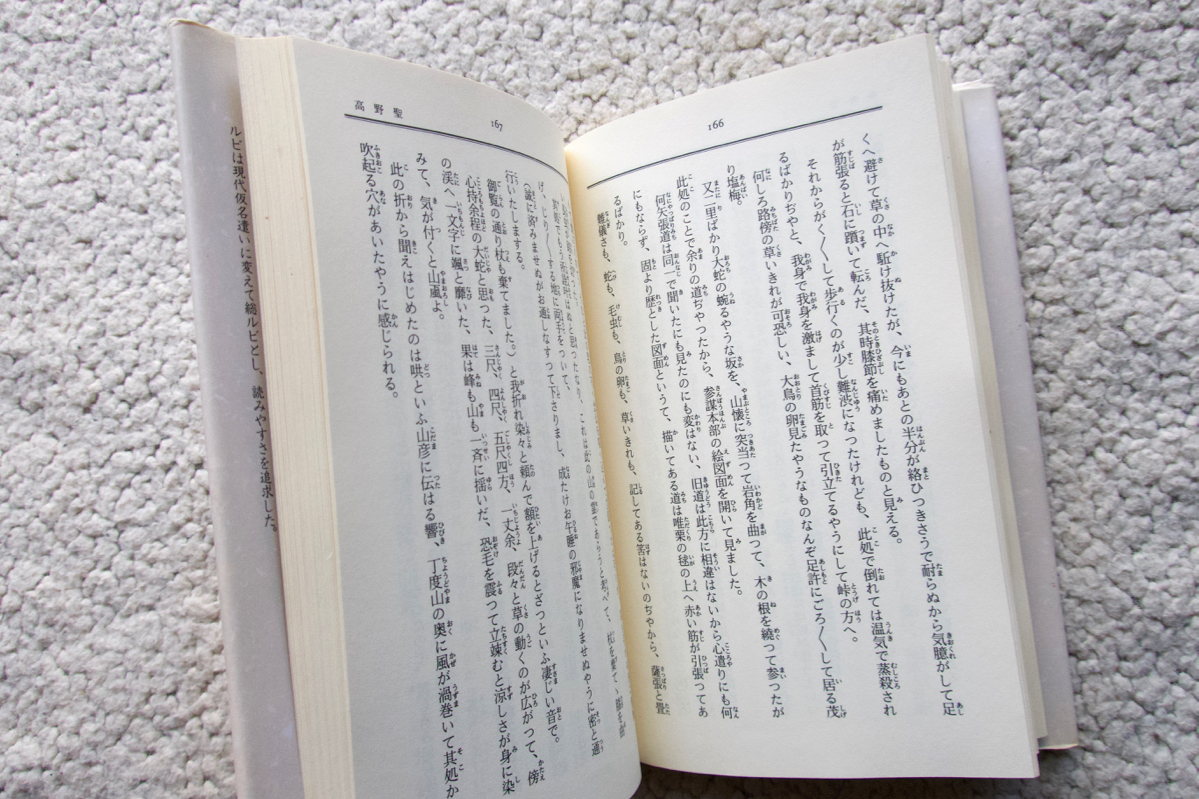 166
くへ避けて草の中へ駈け抜けたが、今にもあとの半分が絡ひつきさうで耐らぬから気臆がして足
が筋張ると石に躓いて転んだ、其時膝節を痛めましたものと見える。
それからがく〳〵して歩行くのが少し難渋になつたけれども、此処で倒れては温気で蒸殺され
るばかりぢやと、我身で我身を激まして首筋を取つて引立てるやうにして峠の方へ。
何しろ路傍の草いきれが可恐しい、大鳥の卵見たやうなものなんぞ足許にごろ〳〵して居る茂
り塩梅。
又二里ばかり大蛇の蜿るやうな坂を、山懐に突当つて岩角を曲つて、木の根を繞つて参つたが
此処のことで余りの道ぢやつたから、参謀本部の絵図面を開いて見ました。
何矢張道は同一で聞いたにも見たのにも変はない、旧道は此方に相違はないから心遣りにも何
にもならず、固より歴とした図面というて、描いてある道は唯栗の毬の上へ赤い筋が引張つてあ
るばかり。
難儀さも、蛇も、毛虫も、鳥の卵も、草いきれも、記してある筈はないのぢやから、薩張と畳
高野聖
167
げ、じり〳〵する地に両手をついて、
(誠に済みませぬがお通しなすつて下さりまし、成たけお午睡の邪魔になりませぬやうに密と通
行いたしまする。
御覧の通り杖も棄てました。)と我折れ染々と頼んで額を上げるとざつといふ凄じい音で。
心持余程の大蛇と思つた、三尺、四尺、五尺四方、一丈余、段々と草の動くのが広がつて、傍
の渓へ一文字に颯と靡いた、果は峰も山も一斉に揺いだ、恐毛を震つて立竦むと涼しさが身に染
みて、気が付くと山颪よ。
此の折から聞えはじめたのは哄といふ山彦に伝はる響、丁度山の奥に風が渦巻いて其処か
吹起る穴があいたやうに感じられる。
ルビは現代仮名遣いに変えて総ルビとし、読みやすさを追求した。